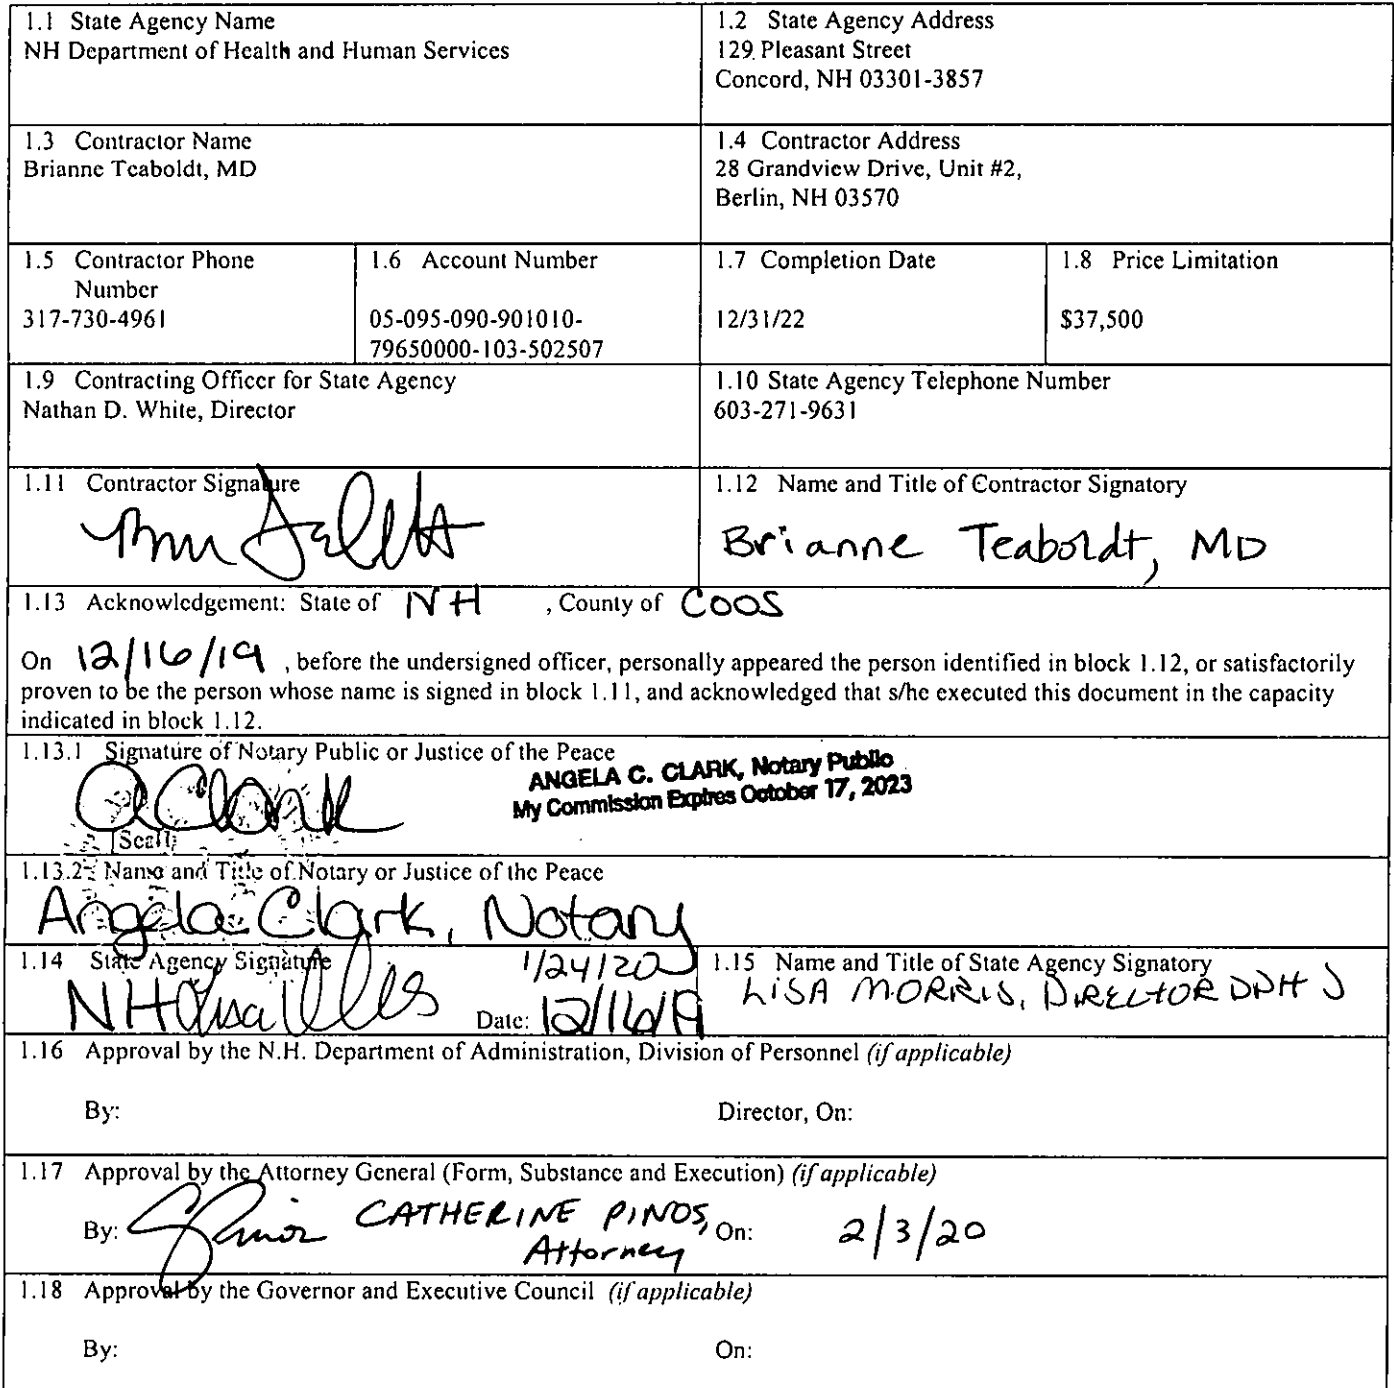 1.1 State Agency Name
NH Department of Health and Human Services
1.2 State Agency Address
129 Pleasant Street
Concord, NH 03301-3857
1.3 Contractor Name
Brianne Teaboldt, MD
1.4 Contractor Address
28 Grandview Drive, Unit #2,
Berlin, NH 03570
1.5 Contractor Phone
Number
317-730-4961
1.6 Account Number
05-095-090-901010-
79650000-103-502507
1.7 Completion Date
12/31/22
1.8 Price Limitation
$37,500
1.9 Contracting Officer for State Agency
Nathan D. White, Director
1.10 State Agency Telephone Number
603-271-9631
1.11 Contractor Signature
1.12 Name and Title of Contractor Signatory
Brianne Teaboldt, MD
1.13 Acknowledgement: State of NH , County of COOS
On 12/16/19 , before the undersigned officer, personally appeared the person identified in block 1.12, or satisfactorily
proven to be the person whose name is signed in block 1.11, and acknowledged that s/he executed this document in the capacity
indicated in block 1.12.
1.13.1 Signature of Notary Public or Justice of the Peace
ANGELA C. CLARK, Notary Public
My Commission Expires October 17, 2023
AClark
[Seal]
1.13.2 Name and Title of Notary or Justice of the Peace
Angela Clark, Notary
1.14 State Agency Signature
1/24/20
NH
Date: 12/16/19
1.15 Name and Title of State Agency Signatory
LISA MORRIS, DIRECTOR DPHS
1.16 Approval by the N.H. Department of Administration, Division of Personnel (if applicable)
By: Director, On:
1.17 Approval by the Attorney General (Form, Substance and Execution) (if applicable)
By: CATHERINE PINOS, On: 2/3/20
Attorney
1.18 Approval by the Governor and Executive Council (if applicable)
By: On: